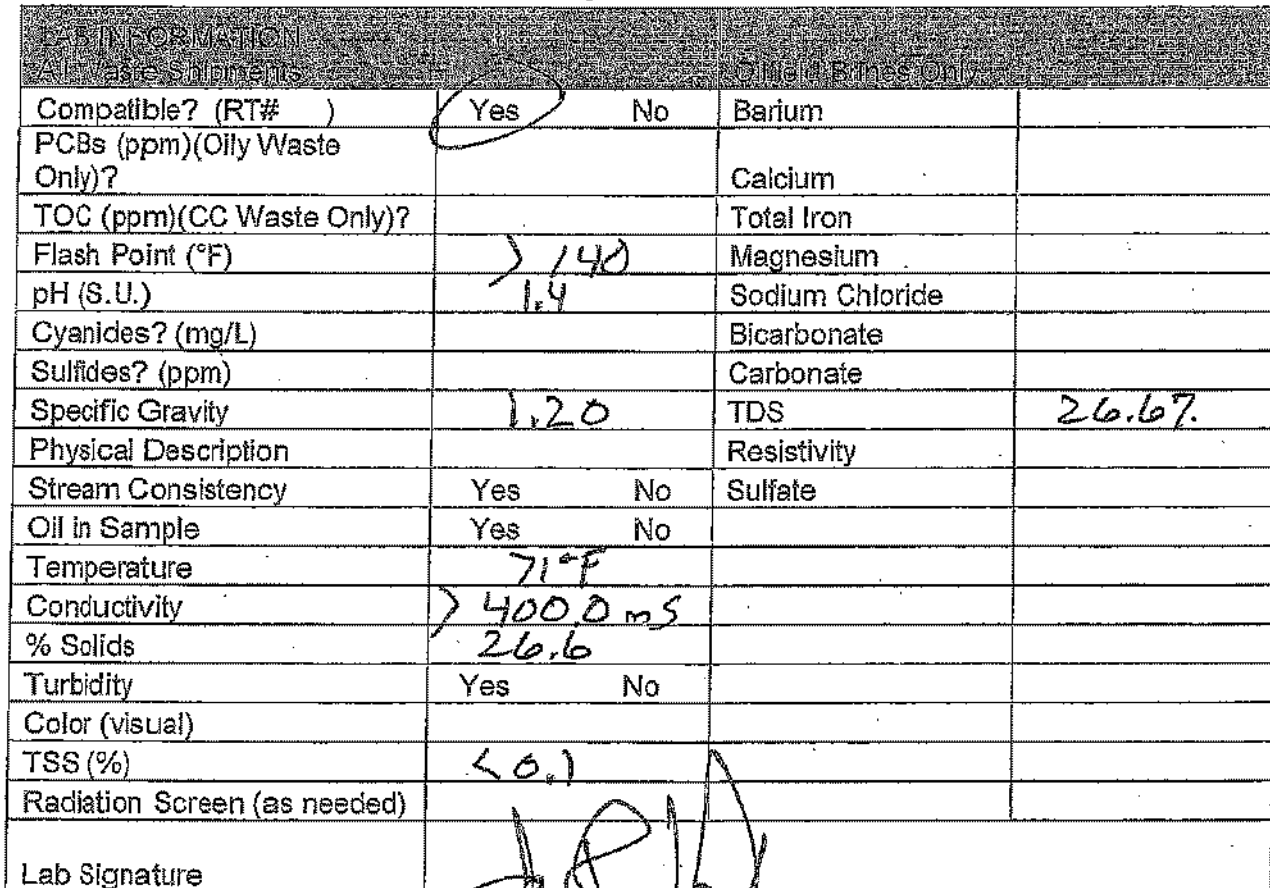 LAB INFORMATION
All Waste Shipments Oilfield Brines Only
Compatible? (RT# ) Yes No Barium
PCBs (ppm)(Oily Waste
Only)? Calcium
TOC (ppm)(CC Waste Only)? Total Iron
Flash Point (°F) > 140 Magnesium
pH (S.U.) 1.4 Sodium Chloride
Cyanides? (mg/L) Bicarbonate
Sulfides? (ppm) Carbonate
Specific Gravity 1.20 TDS 26.6%
Physical Description Resistivity
Stream Consistency Yes No Sulfate
Oil in Sample Yes No
Temperature 71°F
Conductivity > 400.0 mS
% Solids 26.6
Turbidity Yes No
Color (visual)
TSS (%) < 0.1
Radiation Screen (as needed)
Lab Signature